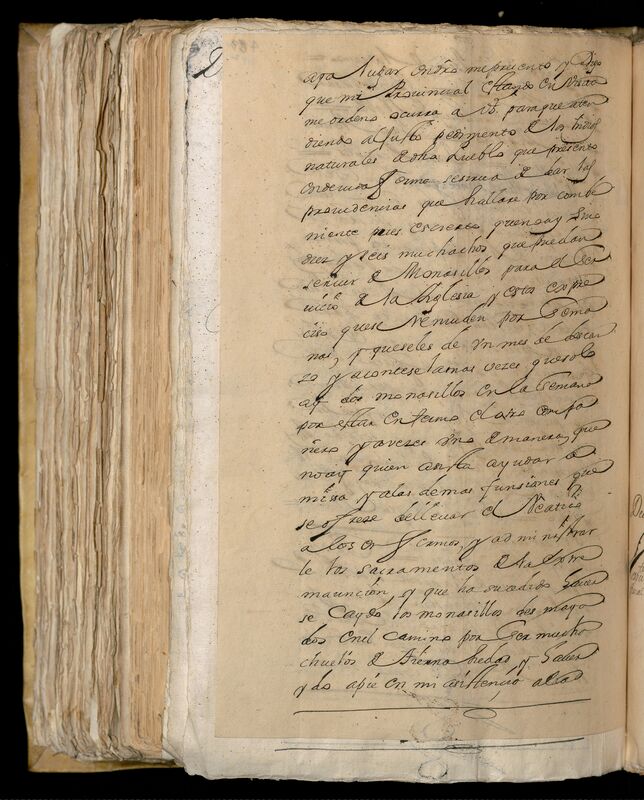 aya lugar en dro me presento y Digo
que mi Provincial estando en Visita
me ordeno ocurra a vd. para que aten
diendo al justo pedimento de los Indios
naturales de dho Pueblo que presento
en devida forma se sirva de dar las
providencias que hallare por combe
niente pues es cierto que no ay sino
diez y seis muchachos que puedan
servir de Monasillos para el Ser
vicio de la Yglesia y estos es pre
ciso que se Remuden por Sema
nas, y que se les de Un mes de descan
zo y acontese la mas vezes que solo
ay dos monasillos en la Semana
por estar enfermo el otro compa
ñero y a vezes uno de manera, que
no ay quien asista ayudar a
missa y a las demas funsiones que
se ofreze de llevar el Viatico
a los enfermos, y administrar
le los Sacramentos de la extre
maunción, y que ha susedido haver
se caydo los monasillos desmaya
dos en el camino por ser mucha
chuelos de tierna hedad y haver
ydo a pie en mi asistencia a las